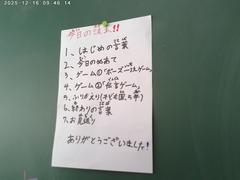 2025-12-16 09:46:14
今日の流れ!!
1、はじめの言葉
2、今日のめあて
3、ゲーム①「ポーズ一致ゲーム」
4、ゲーム②「伝言ゲーム」
5、ふりかえり(子ども園、5年)
6、終わりの言葉
7、お見送り
ありがとうございました!